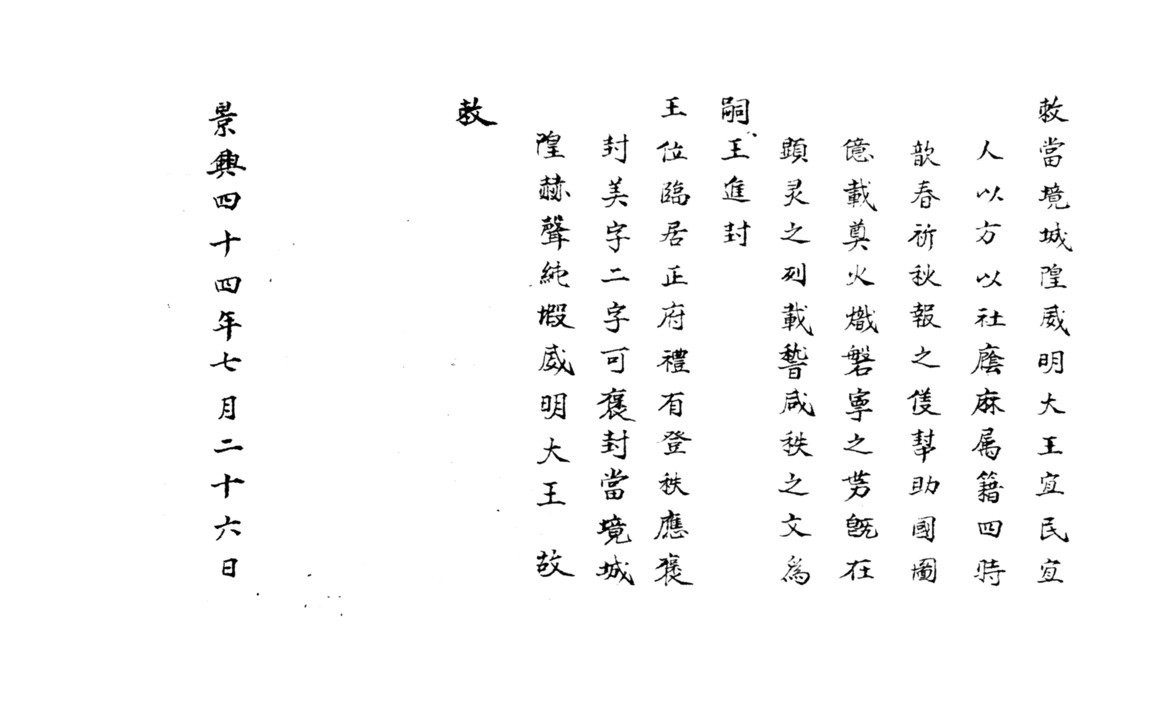 敕當境城隍威明大王宜民宜
人以方以社廕庥属籍四時
歆春祈秋報之僾幇助國圖
億載奠火熾磐寧之劳既在
顕灵之列載嵆咸秩之文爲
嗣王進封
王位臨居正府禮有登秩應褒
封美字二字可褒封當境城
隍赫聲純嘏威明大王 故
敕
景興四十四年七月二十六日